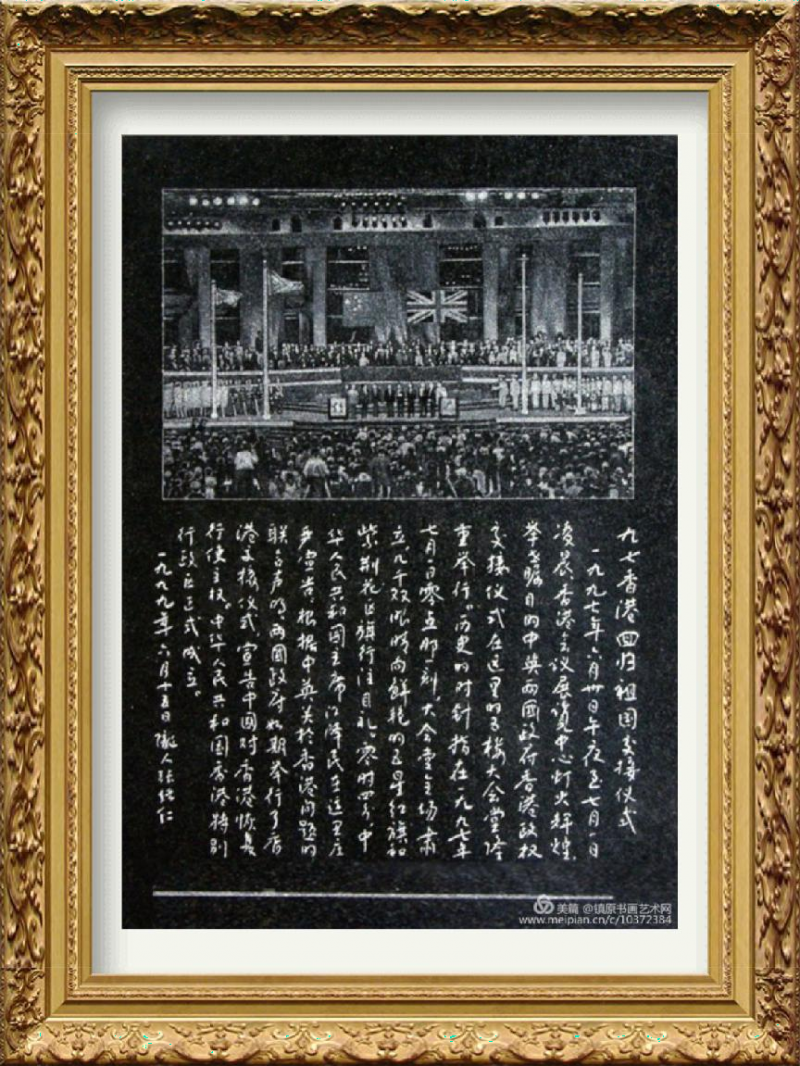 九七香港回归祖国交接仪式
一九九七年六月卅日午夜至七月一日
凌晨香港会议展览中心灯火辉煌,
举世瞩目的中英两國政府香港政权
交接仪式在这里的五楼大会堂隆
重举行。历史的时针指在一九九七年
七月一日零点那一刻,大会堂全场肃
立,几千双眼睛向鲜艳的五星红旗和
紫荆花区旗行注目礼。零时四分,中
华人民共和国主席江泽民在这里庄
严宣告:根据中英关於香港问题的
联合声明,两國政府如期举行了香
港交接仪式,宣告中国对香港恢复
行使主权。中华人民共和国香港特别
行政区正式成立。
一九九九年六月十五日 人张
仁
美篇 @镇原书画艺术网
www.meipian.cn/c/10372384